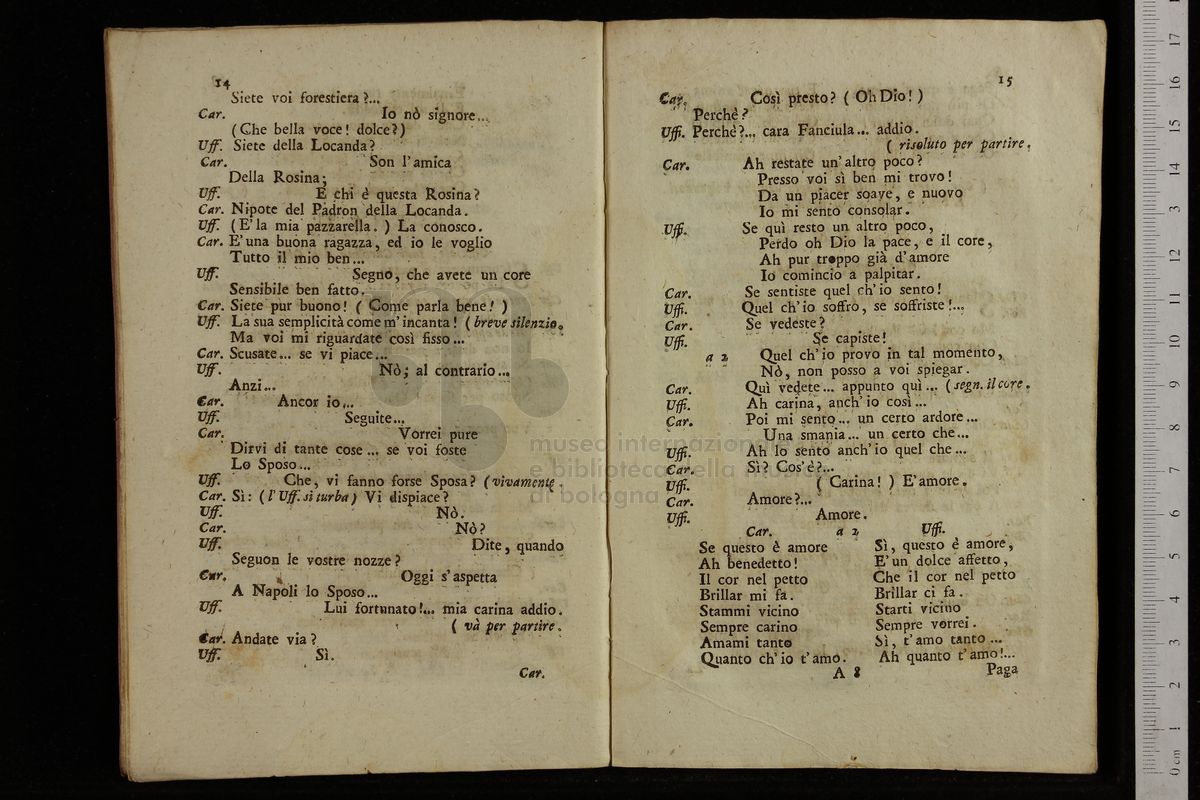 14
Siete voi forestiera?...
Car. Io nò signore...
(Che bella voce! dolce?)
Uff. Siete della Locanda?
Car. Son l'amica
Della Rosina;
Uff. E chi è questa Rosina?
Car. Nipote del Padron della Locanda.
Uff. (E' la mia pazzarella.) La conosco.
Car. E' una buona ragazza, ed io le voglio
Tutto il mio ben...
Uff. Segno, che avete un core
Sensibile ben fatto.
Car. Siete pur buono! (Come parla bene!)
Uff. La sua semplicità come m'incanta! (breve silenzio.
Ma voi mi riguardate così fisso...
Car. Scusate... se vi piace...
Uff. Nò; al contrario...
Anzi...
Car. Ancor io...
Uff. Seguite...
Car. Vorrei pure
Dirvi di tante cose... se voi foste
Lo Sposo...
Uff. Che, vi fanno forse Sposa? (vivamente.
Car. Sì: (l'Uff. si turba) Vi dispiace?
Uff. Nò.
Car. Nò?
Uff. Dite, quando
Seguon le vostre nozze?
Car. Oggi s'aspetta
A Napoli lo Sposo...
Uff. Lui fortunato!... mia carina addio.
(và per partire.
Car. Andate via?
Uff. Sì.
Car.
15
Car. Così presto? (Oh Dio!)
Perchè?
Uffi. Perchè?... cara Fanciula... addio.
(risoluto per partire.
Car. Ah restate un'altro poco?
Presso voi sì ben mi trovo!
Da un piacer soave, e nuovo
Io mi sento consolar.
Uffi. Se quì resto un altro poco,
Perdo oh Dio la pace, e il core,
Ah pur troppo già d'amore
Io comincio a palpitar.
Car. Se sentiste quel ch'io sento!
Uffi. Quel ch'io soffro, se soffriste!...
Car. Se vedeste?
Uffi. Se capiste!
a 2 Quel ch'io provo in tal momento,
Nò, non posso a voi spiegar.
Car. Quì vedete... appunto quì... (segn. il core.
Uffi. Ah carina, anch'io così...
Car. Poi mi sento... un certo ardore...
Una smania... un certo che...
Uffi. Ah lo sento anch'io quel che...
Car. Sì? Cos'è?...
Uffi. (Carina!) E' amore.
Car. Amore?...
Uffi. Amore.
Car. a 2 Uffi.
Se questo è amore Sì, questo è amore,
Ah benedetto! E' un dolce affetto,
Il cor nel petto Che il cor nel petto
Brillar mi fa. Brillar ci fa.
Stammi vicino Starti vicino
Sempre carino Sempre vorrei.
Amami tanto Sì, t'amo tanto...
Quanto ch'io t'amo. Ah quanto t'amo!...
A 8 Paga
museo internazionale
e biblioteca della musica
di bologna